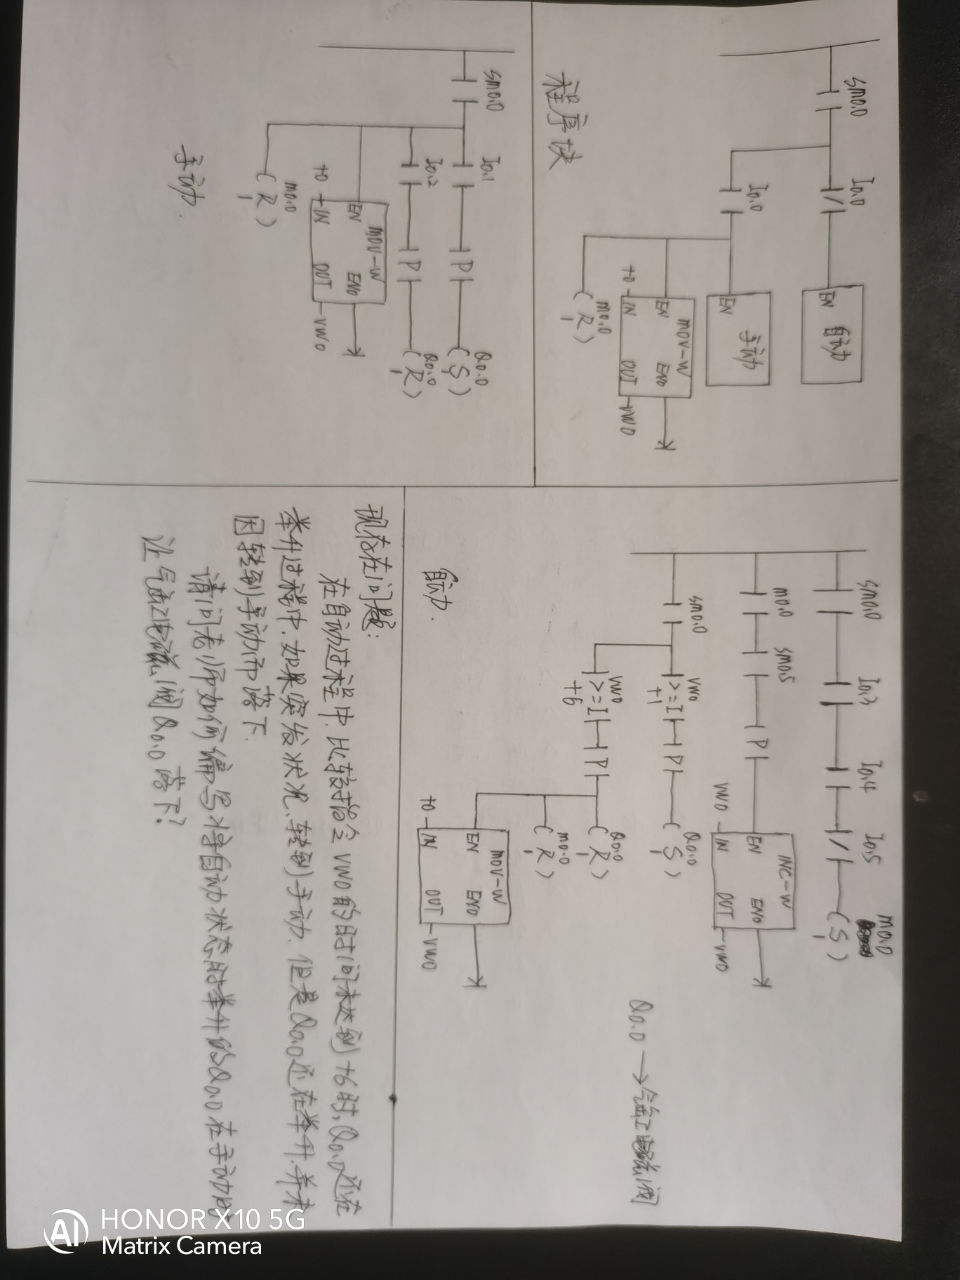 程序块
SM0.0
I0.0
自动
EN
I0.0
手动
EN
MOV-W
EN ENO
+0 IN OUT VW0
M0.0
(R)
1
SM0.0
I0.1
P
Q0.0
(S)
1
I0.2
P
Q0.0
(R)
1
MOV-W
EN ENO
+0 IN OUT VW0
M0.0
(R)
1
手动.
SM0.0 I0.3 I0.4 I0.5 M0.0
(S)
1
M0.0 SM0.5 P
INC-W
EN ENO
VW0 IN OUT VW0
SM0.0
VW0
>=I
+1
P
Q0.0
(S)
1
VW0
>=I
+6
P
Q0.0
(R)
1
M0.0
(R)
1
MOV-W
EN ENO
+0 IN OUT VW0
Q0.0 → 气缸电磁阀
自动.
现存在问题:
在自动过程中比较指令VW0的时间未达到+6时,Q0.0还在
举升过程中.如果突发状况,转到手动.但是Q0.0还在举升.并未
因转到手动而落下.
请问老师如何编写将自动状态时举升的Q0.0在手动时
让气缸电磁阀Q0.0落下?
HONOR X10 5G
Matrix Camera